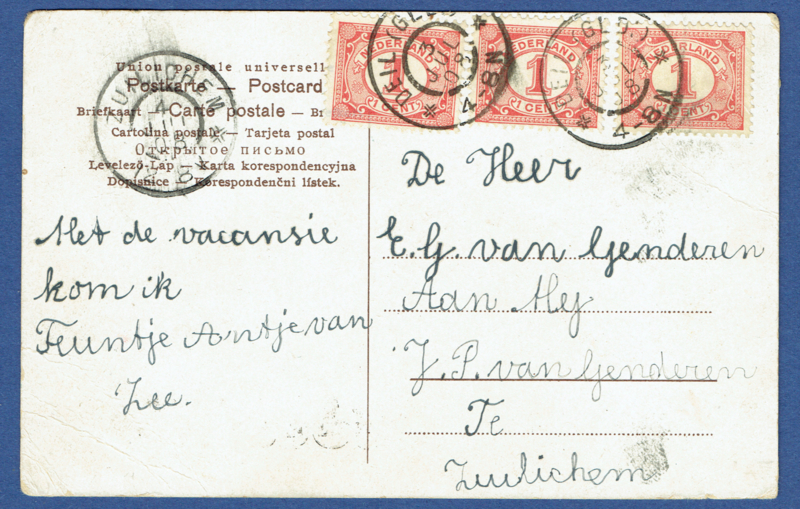 Union postale universelle
Postkarte — Postcard
Briefkaart — Carte postale — Br
Cartolina postale — Tarjeta postal
Открытое письмо
Levelező-Lap — Karta korespondencyjna
Dopisnice — Korespondenční lístek.
ZUILICHEM
NEDERLAND
1 CENT
DEIL (GLD.)
4-8N
NEDERLAND
1
1 CENT
DEIL (GLD.)
4-8N
NEDERLAND
1
CENT
Met de vacansie
kom ik
Teuntje Antje van
Zee.
De Heer
E. G. van Genderen
Aan Mej
J. P. van Genderen
Te
Zuilichem